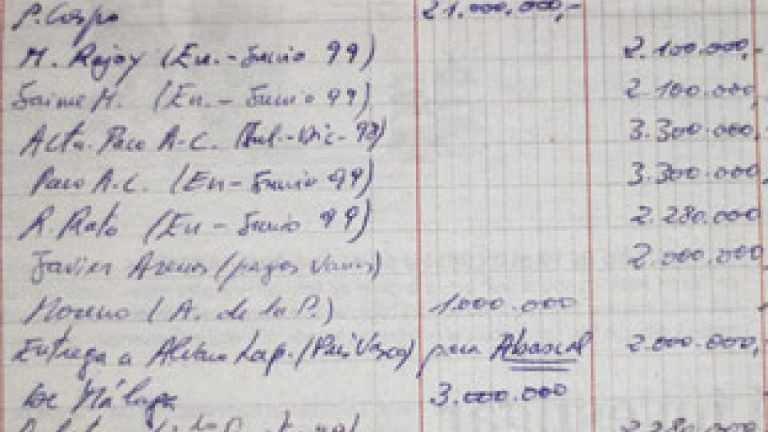 P. Crespo 21.000.000,-
M. Rajoy (En.-Junio 99) 2.100.000,-
Jaime M. (En.- Junio 99) 2.100.000,
Acta. Paco A-C. (Jul.-Dic-98) 3.300.000,
Paco A.C. (En-Junio 99) 3.300.000
R. Rato (En - Junio 99) 2.280.000
Javier Arenas (pagos varios) 2.000.000
Moreno (A. de la P.) 1.000.000
Entrega a Alvaro Lap. (País Vasco) para Abascal 2.000.000,
De Málaga 3.000.000
2.280.000